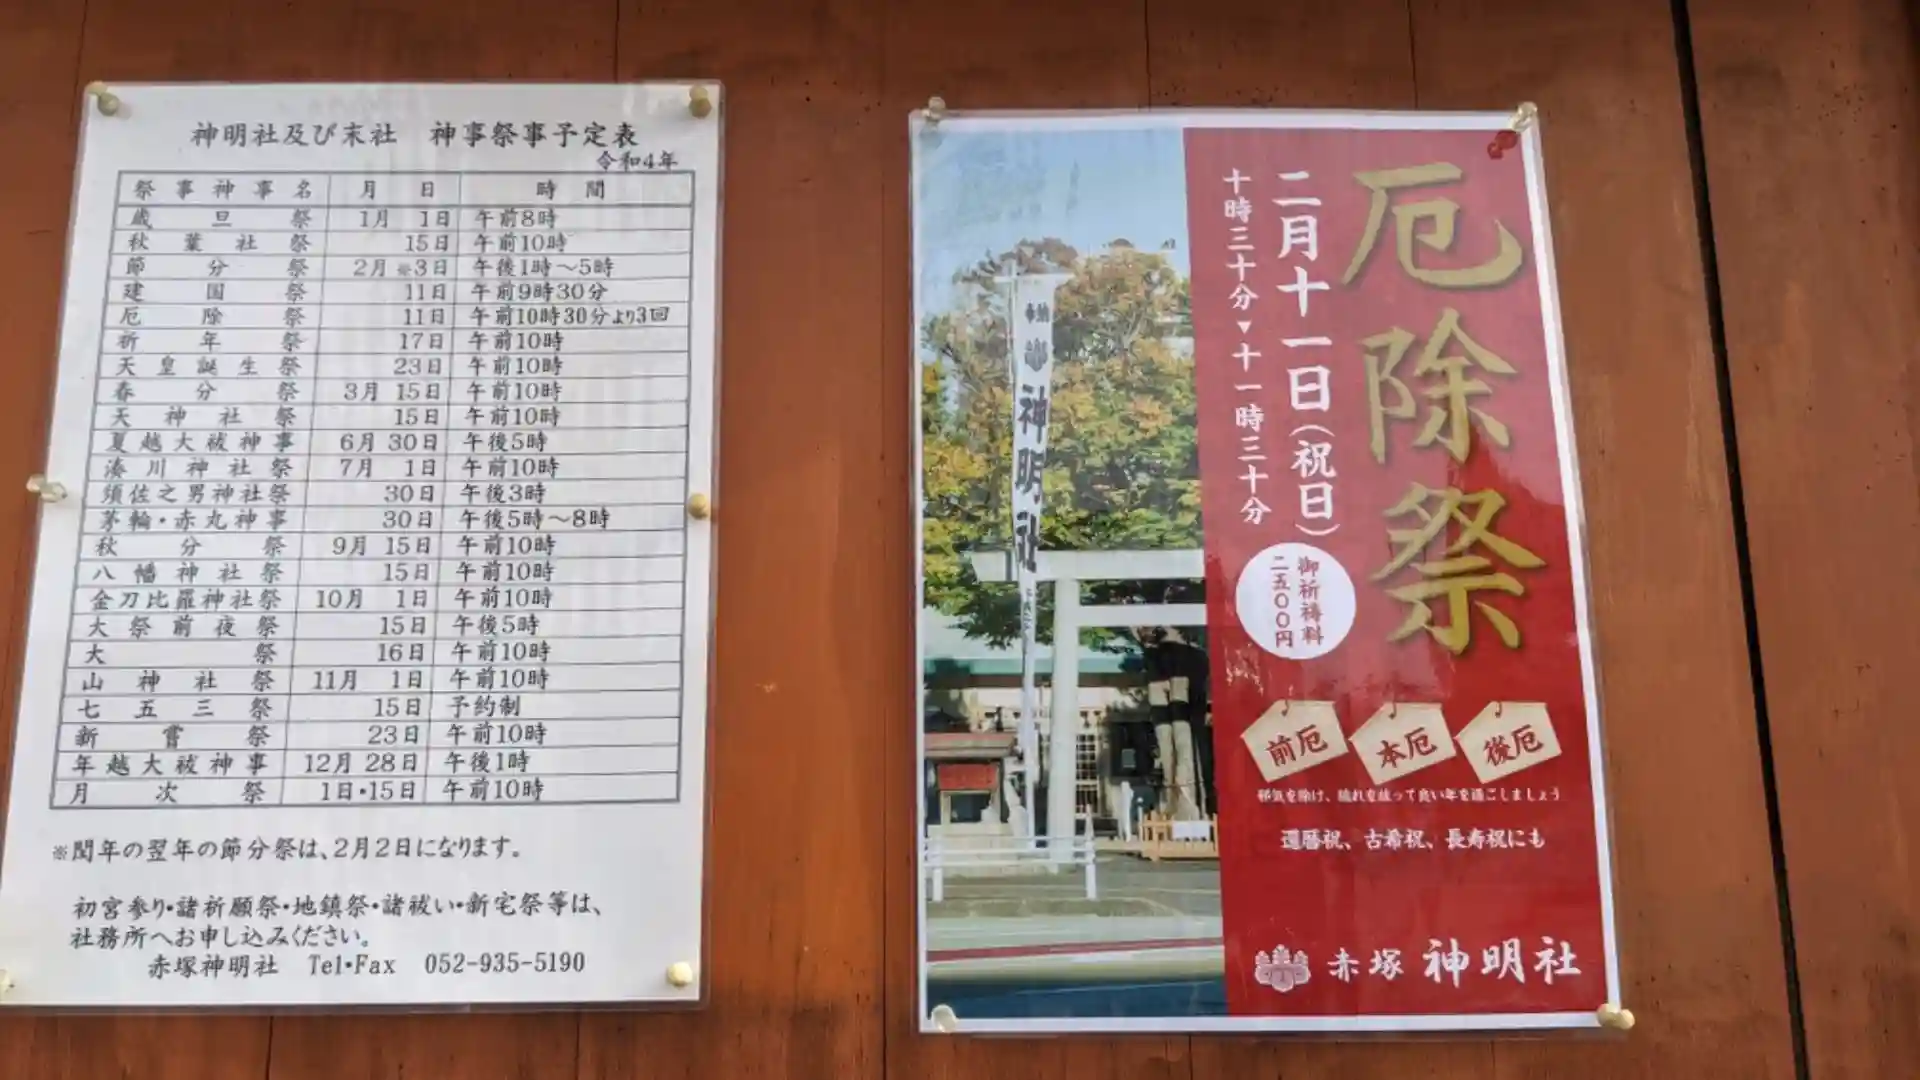 神明社及び末社　神事祭事予定表
令和4年
祭事神事名 月 日 時間
歳旦祭 1月 1日 午前8時
秋葉社祭 15日 午前10時
節分祭 2月 ※3日 午後1時～5時
建国祭 11日 午前9時30分
厄除祭 11日 午前10時30分より3回
祈年祭 17日 午前10時
天皇誕生祭 23日 午前10時
春分祭 3月 15日 午前10時
天神社祭 15日 午前10時
夏越大祓神事 6月 30日 午後5時
湊川神社祭 7月 1日 午前10時
須佐之男神社祭 30日 午後3時
茅輪・赤丸神事 30日 午後5時～8時
秋分祭 9月 15日 午前10時
八幡神社祭 15日 午前10時
金刀比羅神社祭 10月 1日 午前10時
大祭前夜祭 15日 午後5時
大祭 16日 午前10時
山神社祭 11月 1日 午前10時
七五三祭 15日 予約制
新嘗祭 23日 午前10時
年越大祓神事 12月 28日 午後1時
月次祭 1日・15日 午前10時
※閏年の翌年の節分祭は、2月2日になります。
初宮参り・諸祈願祭・地鎮祭・諸祓い・新宅祭等は、
社務所へお申し込みください。
赤塚神明社　Tel・Fax　052-935-5190
厄除祭
二月十一日（祝日）
十時三十分▼十一時三十分
御祈祷料
二五〇〇円
奉納
神明社
前厄
本厄
後厄
邪気を除け、穢れを祓って良い年を過ごしましょう
還暦祝、古希祝、長寿祝にも
赤塚 神明社